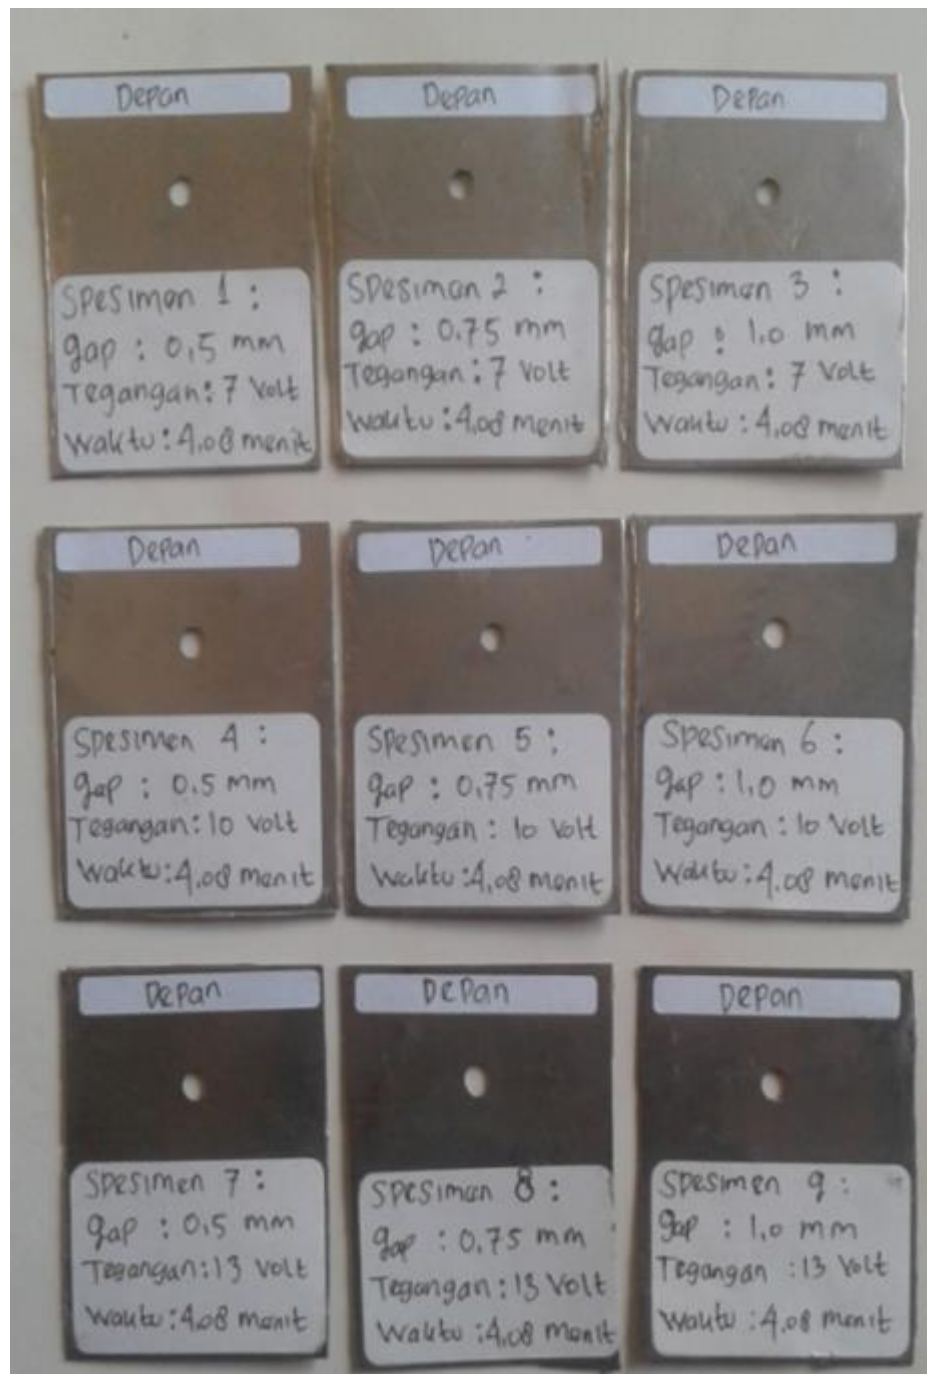 Depan
Spesimen 1 :
gap : 0,5 mm
Tegangan : 7 Volt
Waktu : 4,08 menit
Depan
Spesimen 2 :
gap : 0.75 mm
Tegangan : 7 Volt
Waktu : 4,08 menit
Depan
Spesimen 3 :
gap : 1.0 mm
Tegangan : 7 Volt
Waktu : 4,08 menit
Depan
Spesimen 4 :
gap : 0.5 mm
Tegangan : 10 Volt
Waktu : 4,08 menit
Depan
Spesimen 5 :
gap : 0,75 mm
Tegangan : 10 Volt
Waktu : 4,08 menit
Depan
Spesimen 6 :
gap : 1,0 mm
Tegangan : 10 Volt
Waktu : 4,08 menit
Depan
Spesimen 7 :
gap : 0,5 mm
Tegangan : 13 Volt
Waktu : 4,08 menit
Depan
Spesimen 8 :
gap : 0,75 mm
Tegangan : 13 Volt
Waktu : 4,08 menit
Depan
Spesimen 9 :
gap : 1,0 mm
Tegangan : 13 Volt
Waktu : 4,08 menit